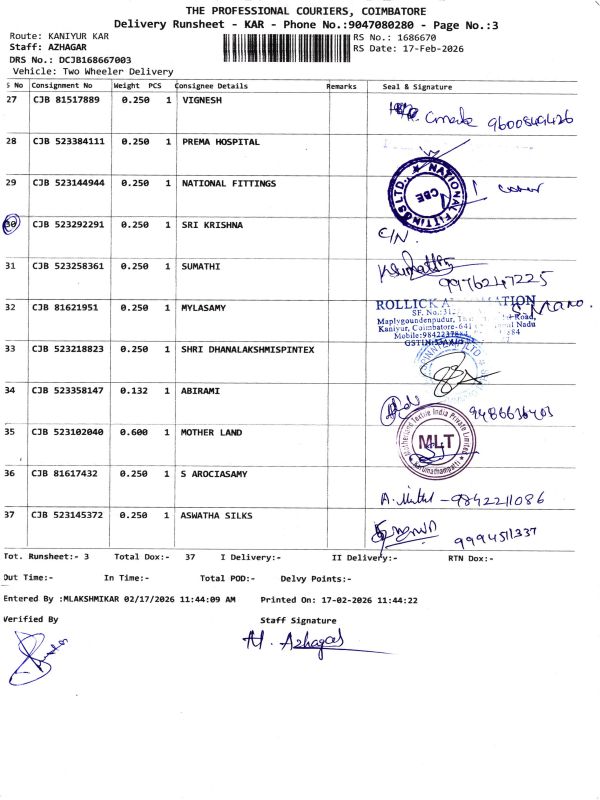 THE PROFESSIONAL COURIERS, COIMBATORE
Delivery Runsheet - KAR - Phone No.:9047080280 - Page No.:3
Route: KANIYUR KAR
RS No.: 1686670
Staff: AZHAGAR
RS Date: 17-Feb-2026
DRS No.: DCJB168667003
Vehicle: Two Wheeler Delivery
S No Consignment No Weight PCS Consignee Details Remarks Seal & Signature
27 CJB 81517889 0.250 1 VIGNESH
28 CJB 523384111 0.250 1 PREMA HOSPITAL
29 CJB 523144944 0.250 1 NATIONAL FITTINGS
NATIONAL FITTINGS LTD. CBE
30 CJB 523292291 0.250 1 SRI KRISHNA
C/N.
31 CJB 523258361 0.250 1 SUMATHI
9976247225
32 CJB 81621951 0.250 1 MYLASAMY
ROLLICK
S. Mano.
Maplygoundenpudur, Road,
Kaniyur, Coimbatore-641 Nadu
33 CJB 523218823 0.250 1 SHRI DHANALAKSHMISPINTEX
34 CJB 523358147 0.132 1 ABIRAMI
35 CJB 523102040 0.600 1 MOTHER LAND
Motherland Textile India Private Limited
MLT
36 CJB 81617432 0.250 1 S AROCIASAMY
9842211086
37 CJB 523145372 0.250 1 ASWATHA SILKS
9994511337
Tot. Runsheet:- 3 Total Dox:- 37 I Delivery:- II Delivery:- RTN Dox:-
Out Time:- In Time:- Total POD:- Delvy Points:-
Entered By :MLAKSHMIKAR 02/17/2026 11:44:09 AM Printed On: 17-02-2026 11:44:22
Verified By Staff Signature
M. Azhagar